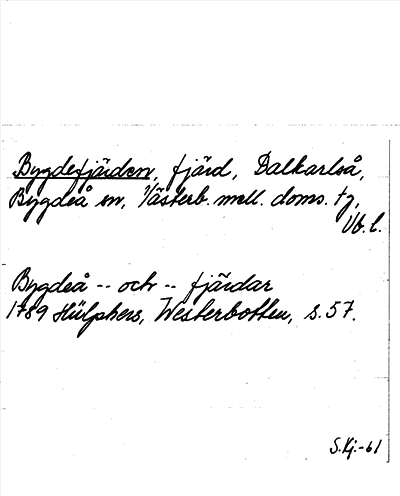 Bygdefjärden, fjärd, Dalkarlså,
Bygdeå sn, Västerb. mell. doms. tg,
Vb. l.
Bygdeå -- och -- fjärdar
1789 Hülphers, Westerbotten, s. 57.
S. Kj. -61